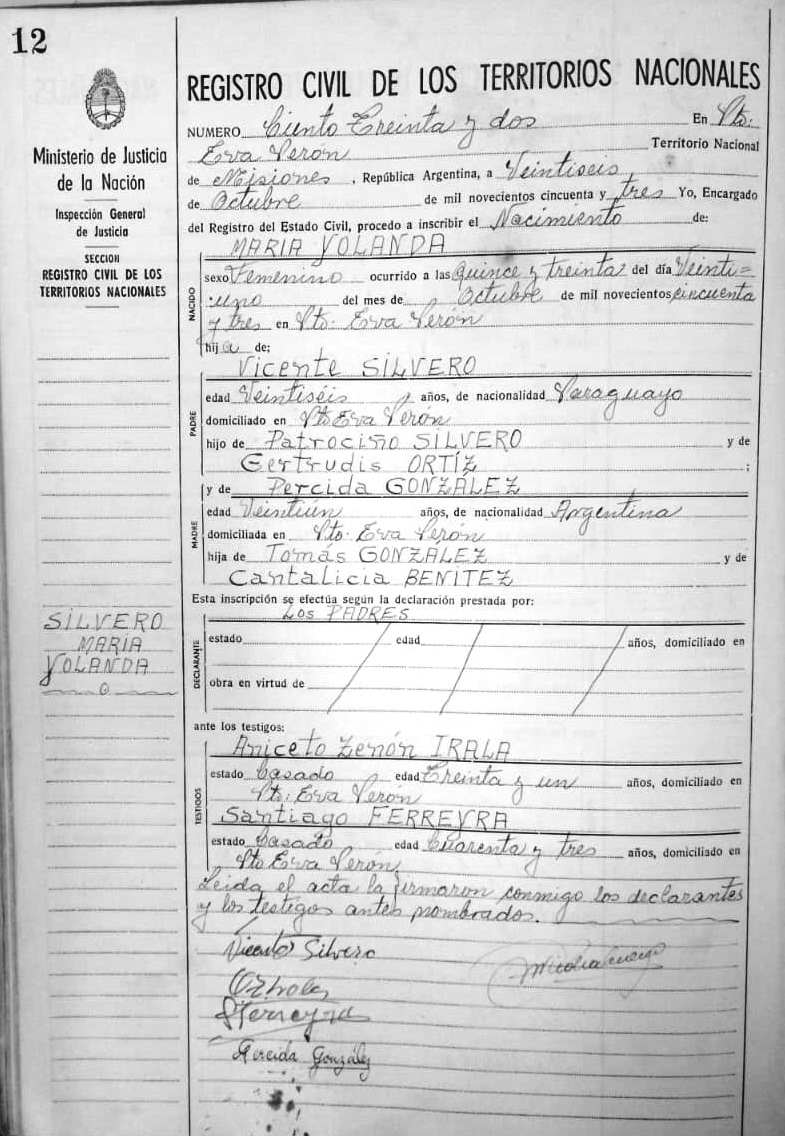 12
Ministerio de Justicia
de la Nación
Inspección General
de Justicia
SECCION
REGISTRO CIVIL DE LOS
TERRITORIOS NACIONALES
SILVERO
MARIA
YOLANDA
REGISTRO CIVIL DE LOS TERRITORIOS NACIONALES
NUMERO Ciento Treinta y dos En Pto:
Eva Perón Territorio Nacional
de Misiones, República Argentina, a Veintiseis
de Octubre de mil novecientos cincuenta y tres Yo, Encargado
del Registro del Estado Civil, procedo a inscribir el Nacimiento de:
MARIA YOLANDA
NACIDO
sexo Femenino ocurrido a las Quince y treinta del día Veinti=
uno del mes de Octubre de mil novecientos cincuenta
y tres en Pto: Eva Perón
hija de;
Vicente SILVERO
PADRE
edad Veintiséis años, de nacionalidad Paraguayo
domiciliado en Pto Eva Perón
hijo de Patrociño SILVERO y de
Gertrudis ORTÍZ ;
y de Percida GONZÁLEZ
MADRE
edad Veintiún años, de nacionalidad Argentina
domiciliada en Pto. Eva Perón
hija de Tomás GONZALEZ y de
Cantalicia BENITEZ
Esta inscripción se efectúa según la declaración prestada por:
Los PADRES
DECLARANTE
estado edad años, domiciliado en
obra en virtud de
ante los testigos:
Aniceto Zenón IRALA
TESTIGOS
estado Casado edad Treinta y un años, domiciliado en
Pto: Eva Perón
Santiago FERREYRA
estado Casado edad Cuarenta y tres años, domiciliado en
Pto Eva Perón
Leida el acta la firmaron conmigo los declarantes
y los testigos antes nombrados.
Vicente Silvero
SFerreyra
Percida González